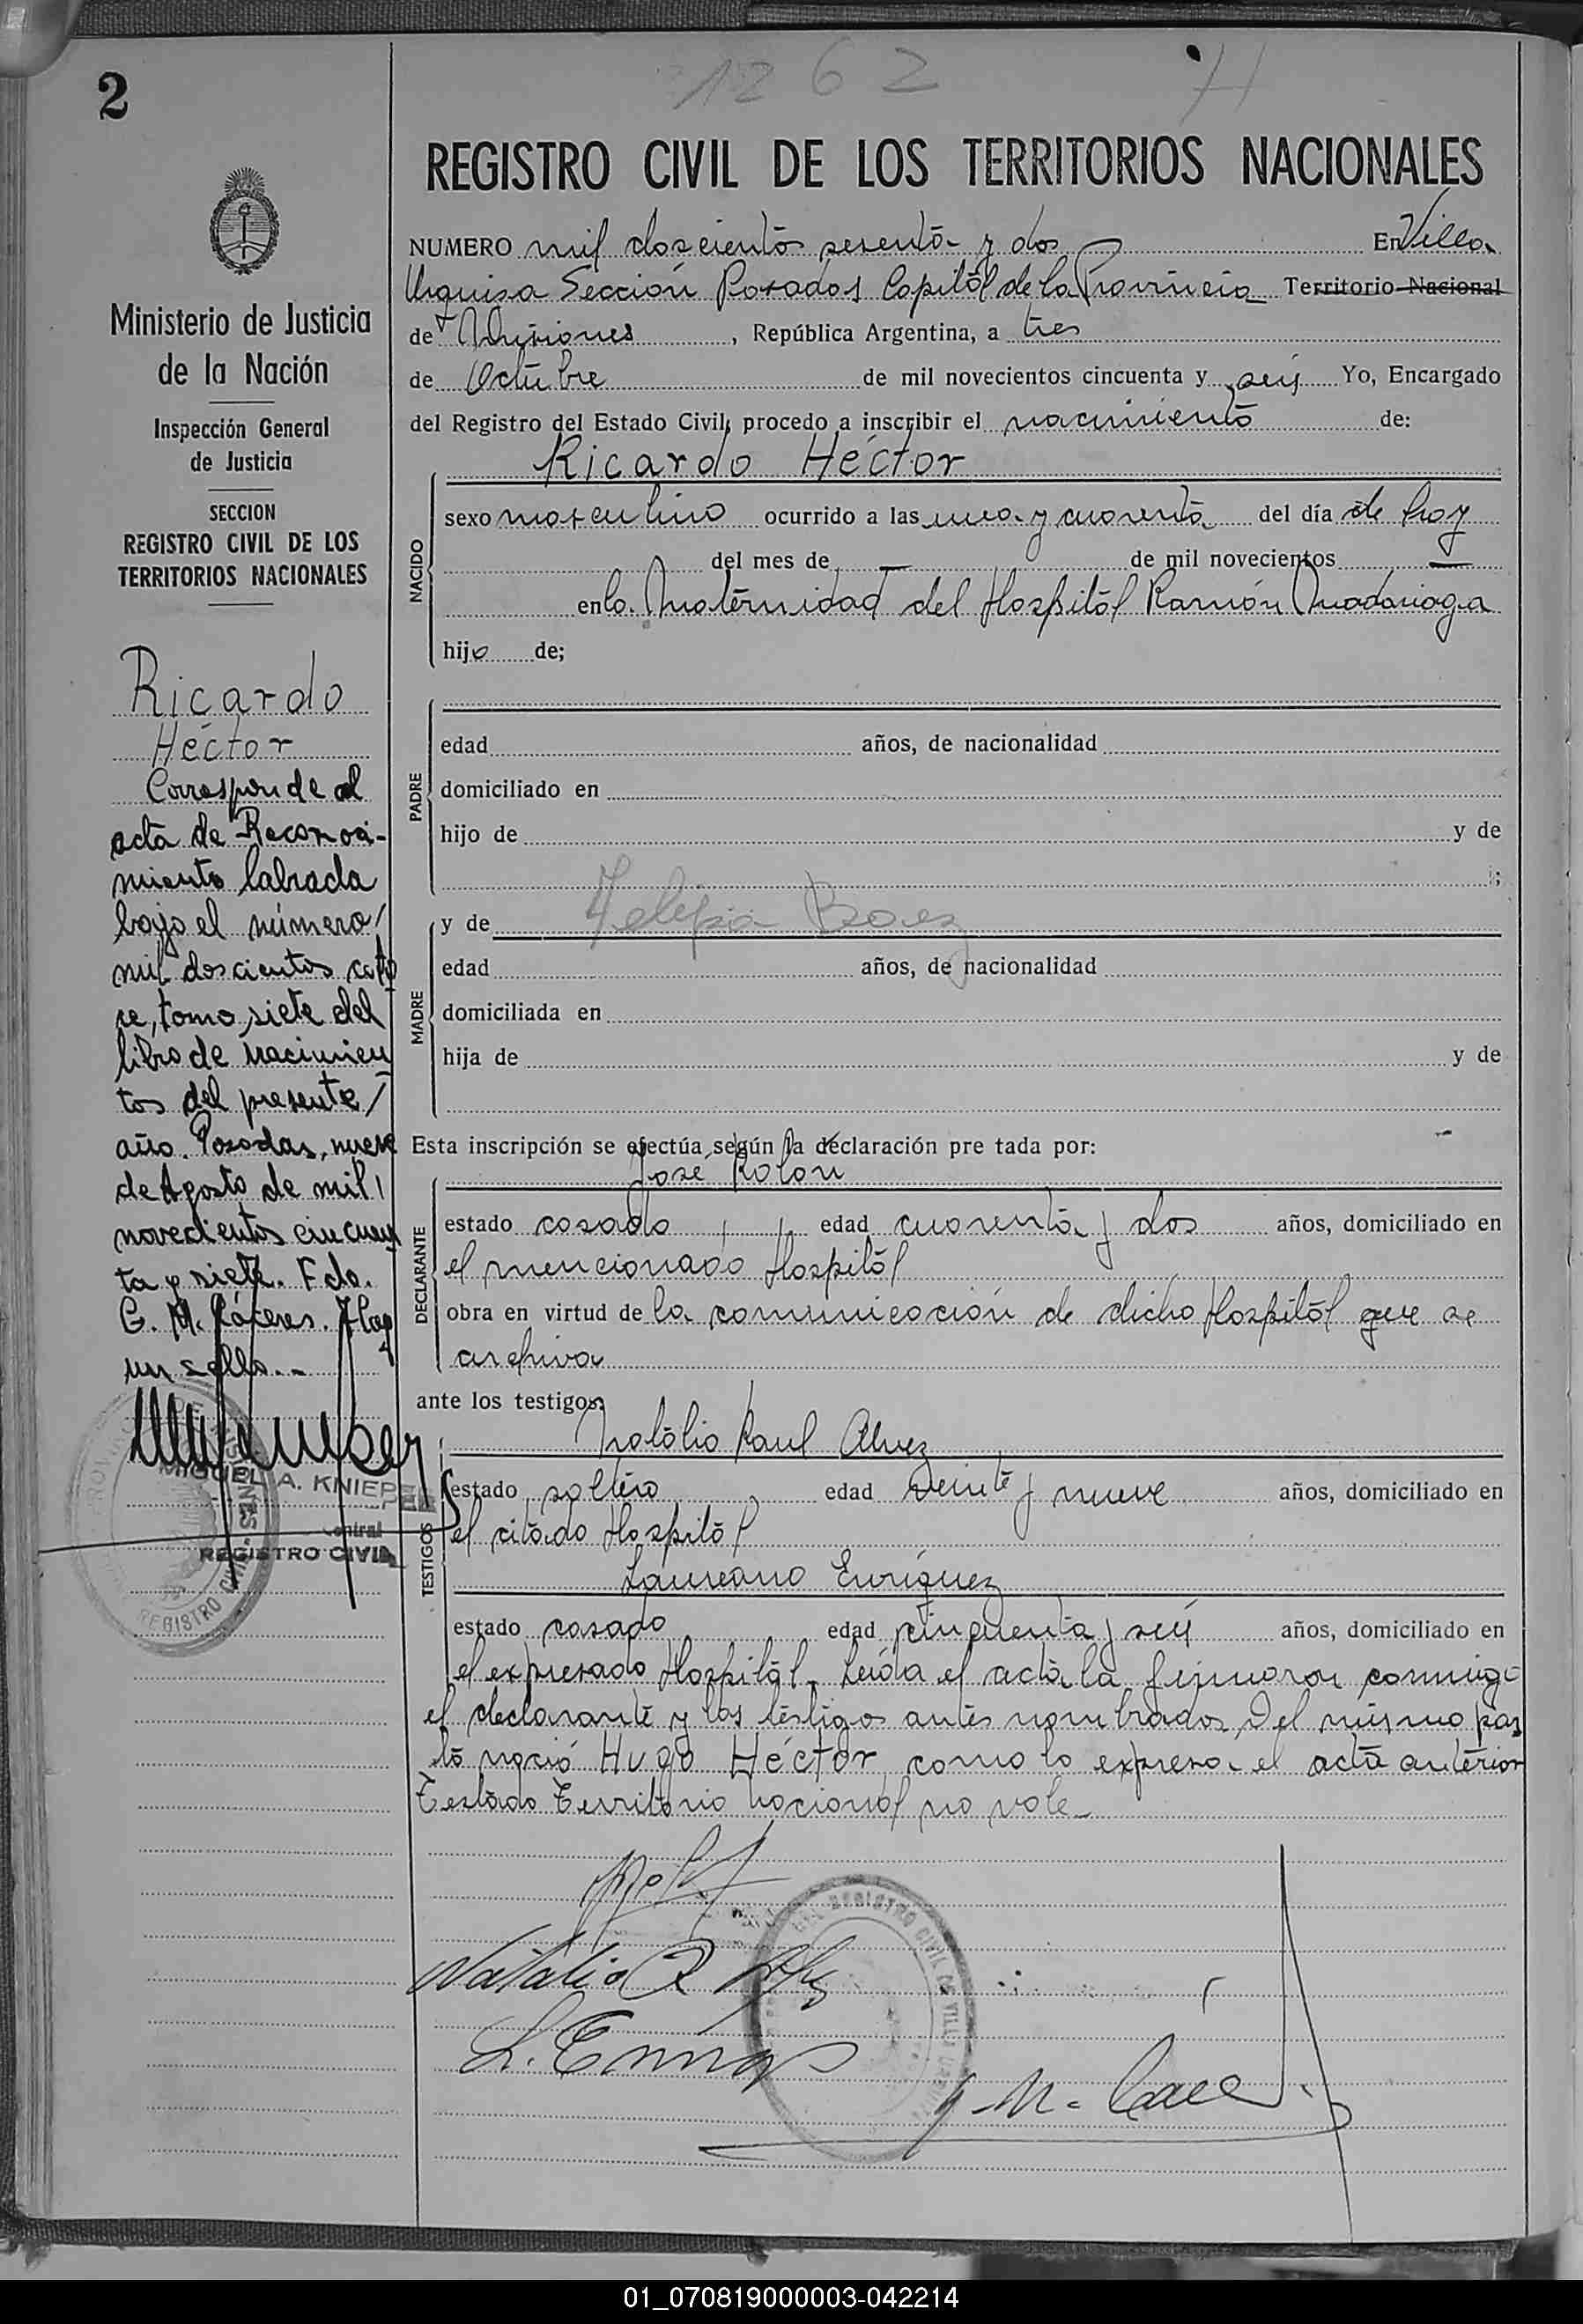 2
1262 H
REGISTRO CIVIL DE LOS TERRITORIOS NACIONALES
NUMERO mil doscientos sesenta y dos En Villa
Urquiza Sección Posadas Capital de la Provincia Territorio Nacional
de Misiones, República Argentina, a tres
de Octubre de mil novecientos cincuenta y seis Yo, Encargado
del Registro del Estado Civil, procedo a inscribir el nacimiento de:
Ricardo Héctor
NACIDO
sexo masculino ocurrido a las una y cuarenta del día de hoy
del mes de — de mil novecientos —
en la Maternidad del Hospital Ramón Madariaga
hijo de;
PADRE
edad años, de nacionalidad
domiciliado en
hijo de y de
;
MADRE
y de Felipa Baez
edad años, de nacionalidad
domiciliada en
hija de y de
Esta inscripción se efectúa según la declaración pre tada por:
DECLARANTE
José Rolón
estado casado edad cuarenta y dos años, domiciliado en
el mencionado Hospital
obra en virtud de la comunicación de dicho Hospital que se
archiva
ante los testigos:
TESTIGOS
Natalio Raul Alvez
estado soltero edad veinte y nueve años, domiciliado en
el citado Hospital
Laureano Enriquez
estado casado edad cincuenta y seis años, domiciliado en
el expresado Hospital. Leída el acta la firmaron conmigo
el declarante y los testigos antes nombrados. Del mismo par
to nació Hugo Héctor, como lo expresa el acta anterior
Testado Territorio Nacional no vale_
Natalio R
L. Enriq
REGISTRO CIVIL DE VILLA URQUIZA
Ministerio de Justicia
de la Nación
Inspección General
de Justicia
SECCION
REGISTRO CIVIL DE LOS
TERRITORIOS NACIONALES
Ricardo
Héctor
Corresponde al
acta de Reconoci-
miento labrada
bajo el número
mil doscientos cator
ce, tomo siete del
libro de nacimien
tos del presente
año. Posadas, nueve
de Agosto de mil
novecientos cincuen
ta y siete. Fdo.
G. M. Cáceres. Hay
un sello.-
MIGUEL A. KNIEPE
REGISTRO CIVIL
REGISTRO CIVIL
01_070819000003-042214